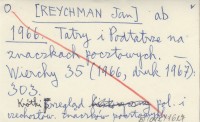 [REYCHMAN Jan] ab
1966. Tatry i Podtatrze na
znaczkach pocztowych. —
Wierchy 35 (1966, druk 1967):
303.
Krótki przegląd pol. i
czechosł. znaczków